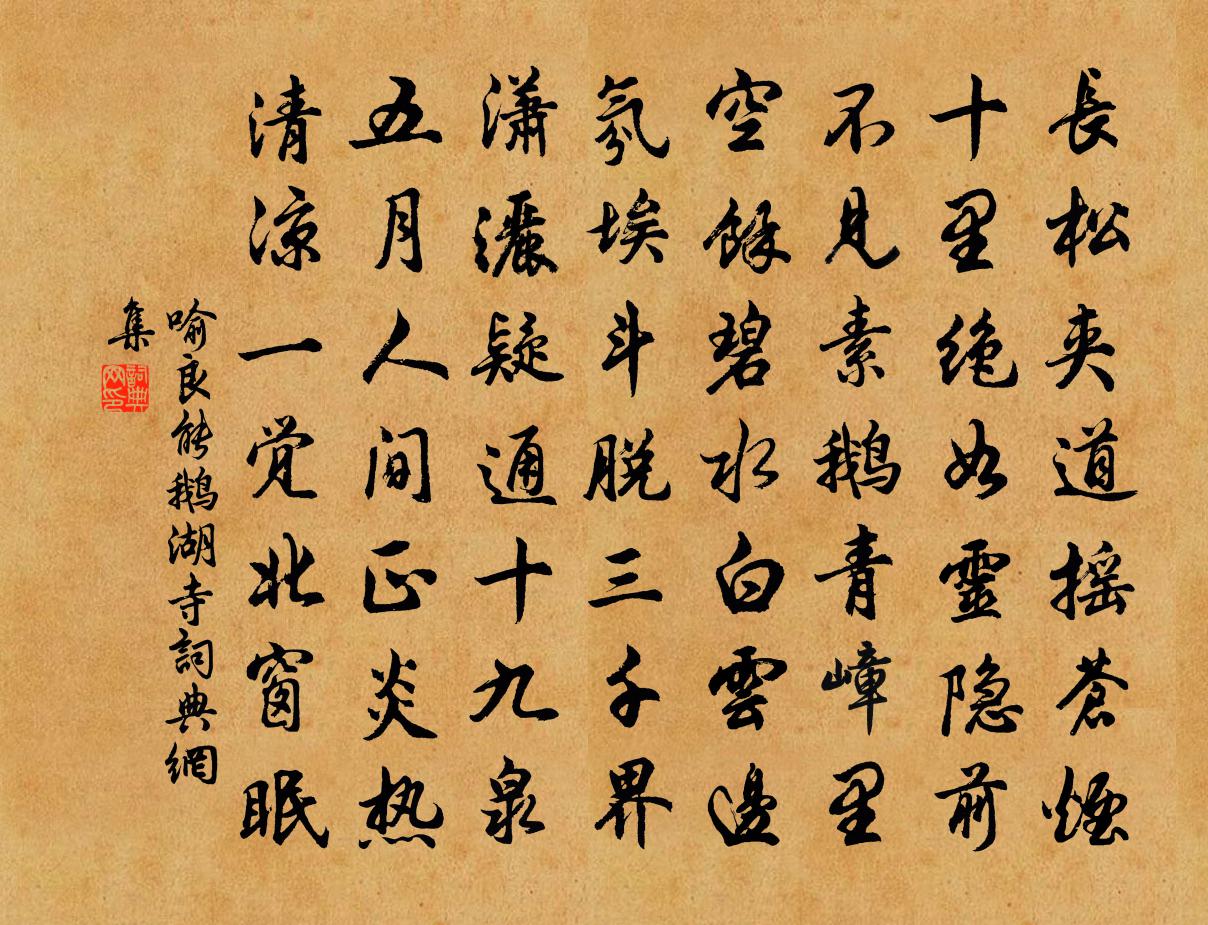 長松夹道摇蒼煙
十里绝如靈隐前
不見素鹅青嶂里
空餘碧水白雲邊
氛埃斗脱三千界
潇灑疑通十九泉
五月人间正炎热
清凉一觉北窗眠
喻良能鹅湖寺詞典網
集
詞典网印